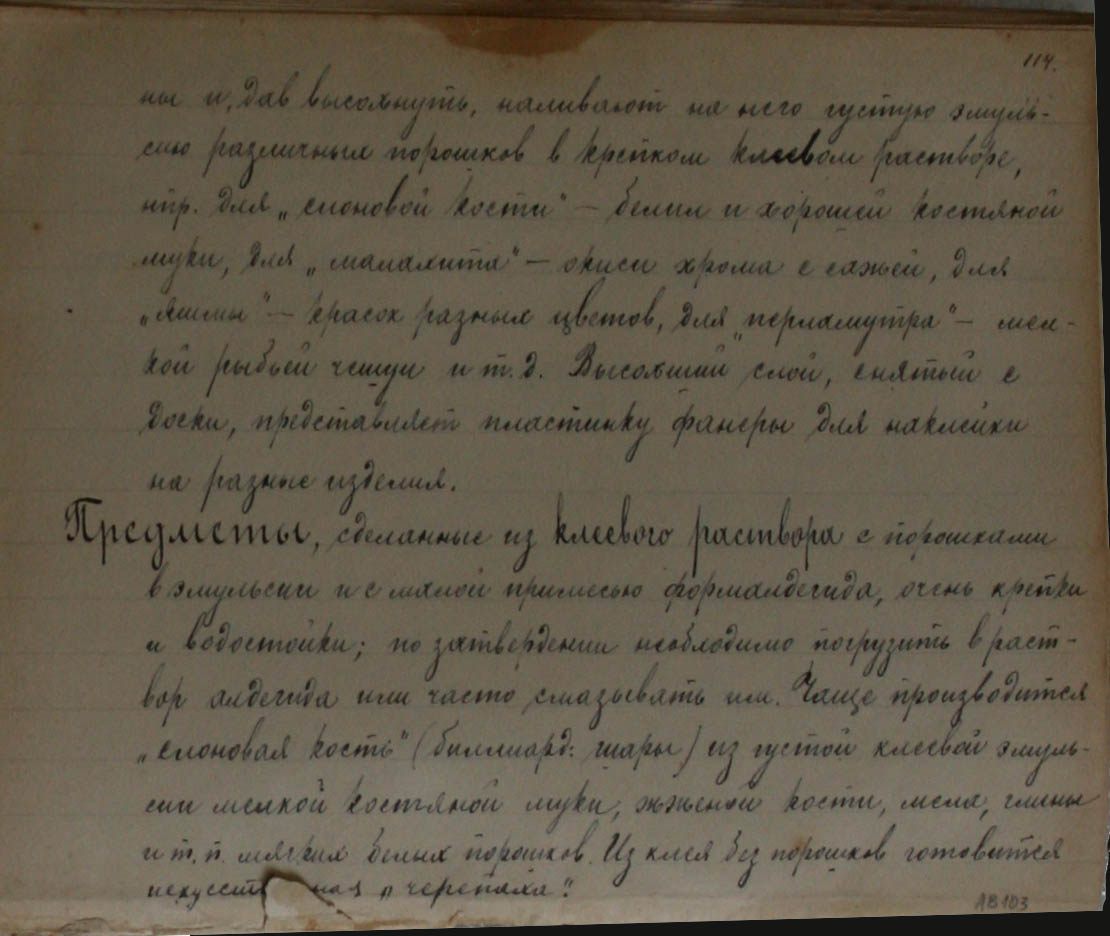 114.
ны и, дав высохнуть, наливают на него густую эмуль-
сию различных порошков в крепком клеевом растворе,
нпр. для „слоновой кости" — белил и хорошей костяной
муки, для „малахита" — окиси хрома с сажей, для
„яшмы" — красок разных цветов, для „перламутра" — мел-
кой рыбьей чешуи и т.д. Высохший слой, снятый с
доски, представляет пластинку фанеры для наклейки
на разные изделия.
Предметы, сделанные из клеевого раствора с порошками
в эмульсии и с малой примесью формалдегида, очень крепки
и водостойки; по затвердении необходимо погрузить в раст-
вор алдегида или часто смазывать им. Чаще производится
„слоновая кость" (биллиард: шары) из густой клеевой эмуль-
сии мелкой костяной муки, жженой кости, мела, глины
и т.п. мягких белых порошков. Из клея без порошков готовится
искусст ная „черепаха".
АВ103